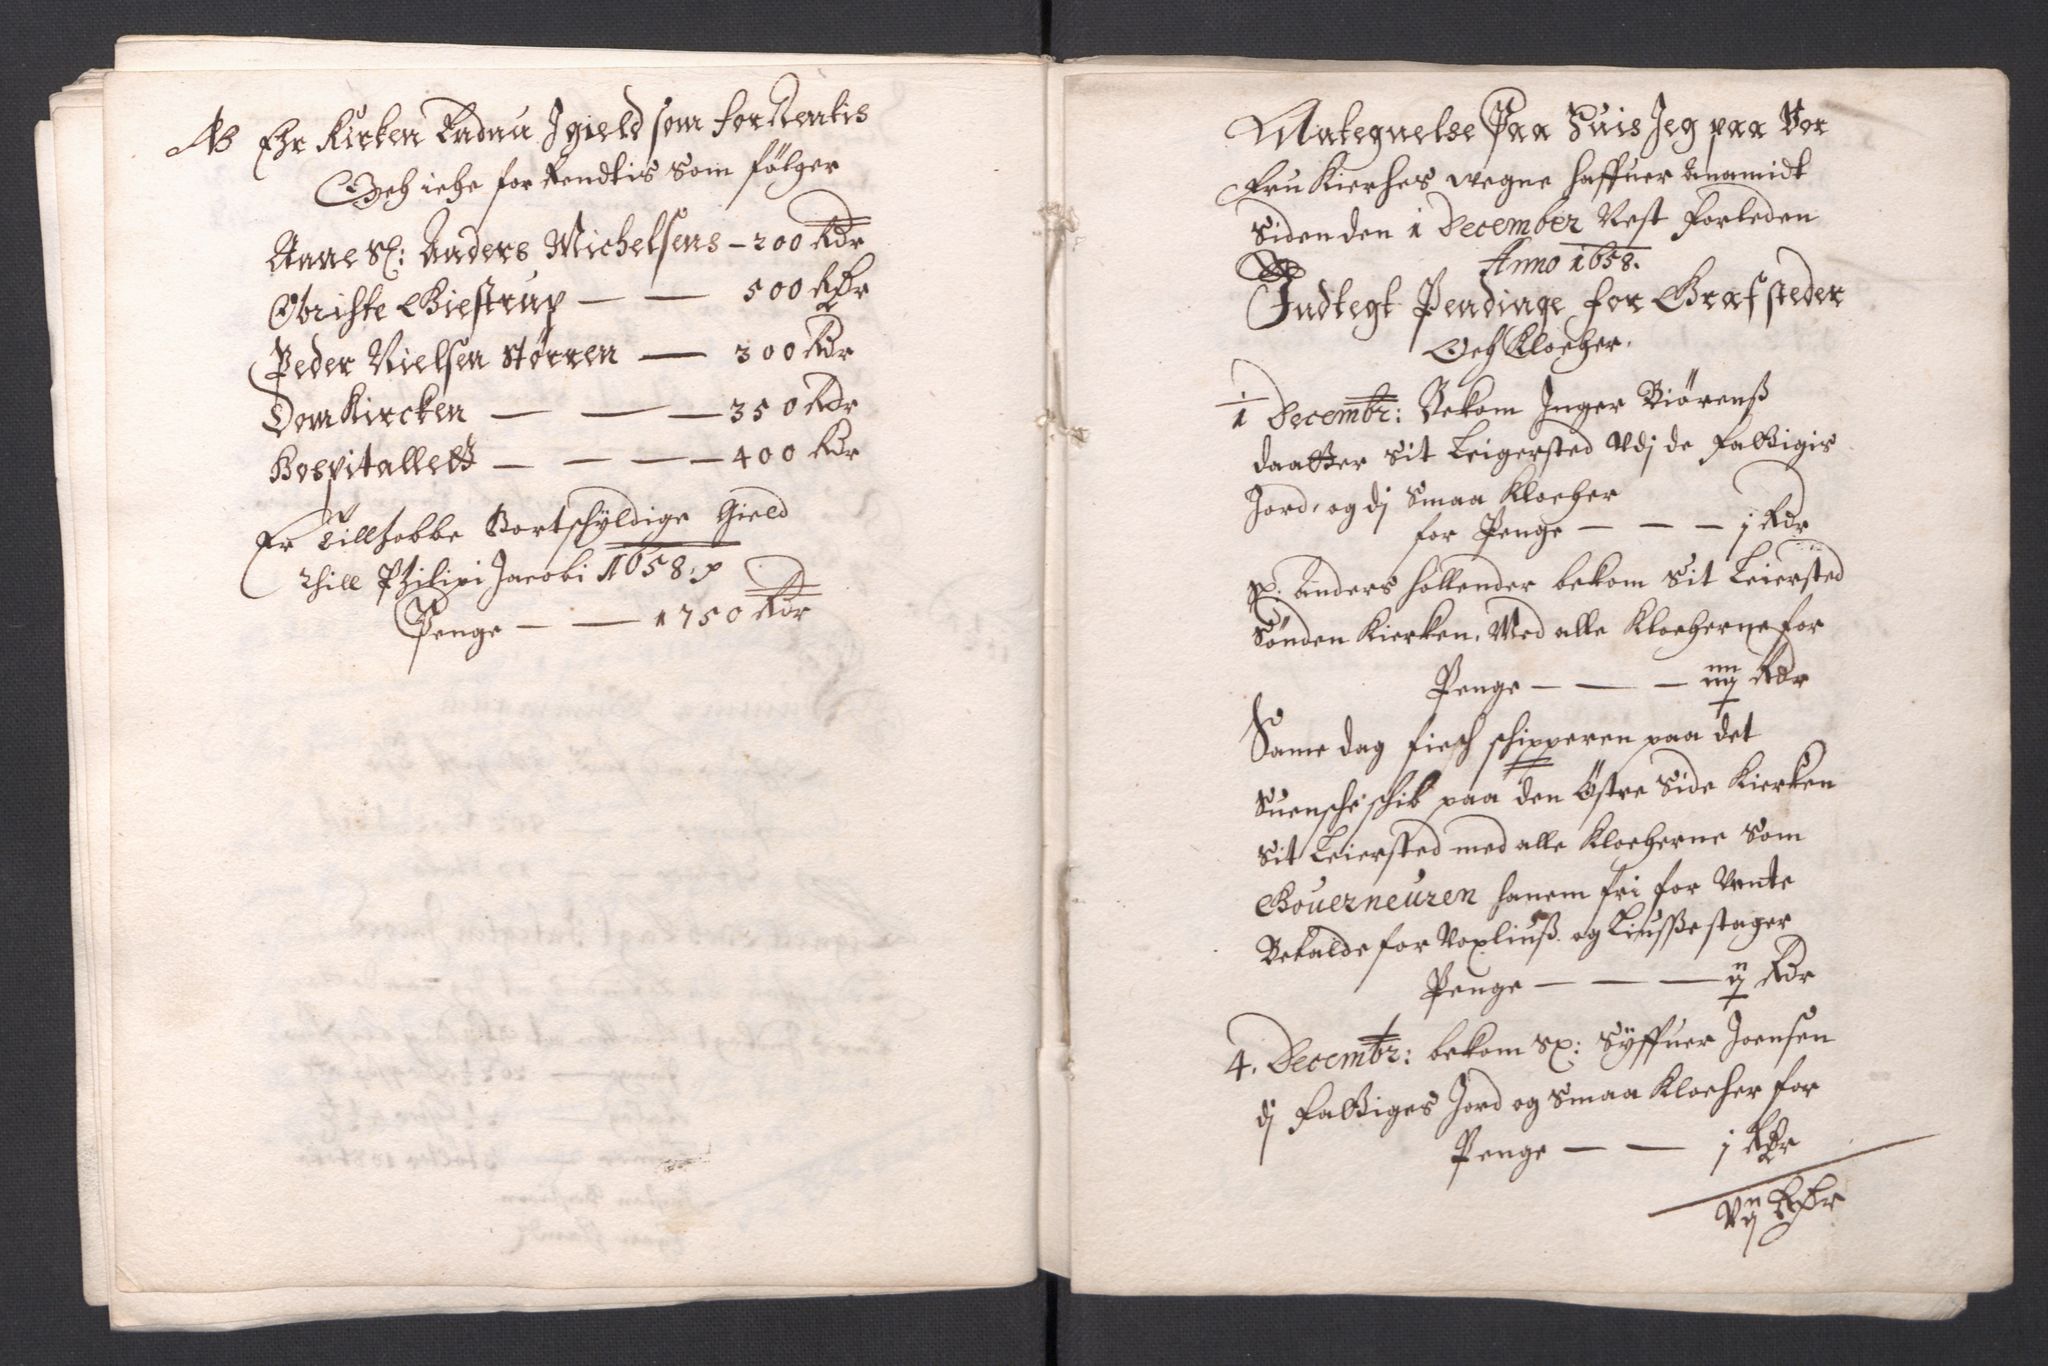 NB Ehr Kirken Endnu J gield som for Rentis
Och iche for Rendtis som fölger
Anne Sl: Anders Michelsens – 200 Rdr
Obriste Giestrup — — 500 Rdr
Peder Nielsen Størren — 300 Rdr
Dom Kircken — — — 350 Rdr
Hospitallett — — — — 400 Rdr
Er Tillsobbe Bortschÿldige Gield
Thill Philipi Jacobi 1658:
Penge — — 1750 Rdr
Antegnelse Paa Huis Jeg paa Vor
Fru Kierches wegne haffuer Anamidt
Siden den 1 December Nest Forleden
Anno 1658.
Indtegt Pendinge for Grafsteder
Och Klocher.
1 Decembr: Bekom Inger Biörenß
daatter sit Leigersted Vdj de Fattigis
Jord, og dj smaa Klocher
for Penge — — — j Rdr
Sl. Anders Hollender bekom sit Leiersted
Sönden Kierken, Med alle Klocherne for
Penge — — — iiij Rdr
Same dag fich schipperen paa det
Suensche schib paa den Östre Side Kierken
sit Leiersted med alle Klocherne som
Gouerneuren hanem fri for Vente
Betalde for Voxliuß og Liussestager
Penge — — — ij Rdr
4. Decembr: bekom Sl: Sÿffuer Joensen
dj Fattiges Jord og smaa Klocher for
Penge — — j Rdr
Vij Rdr